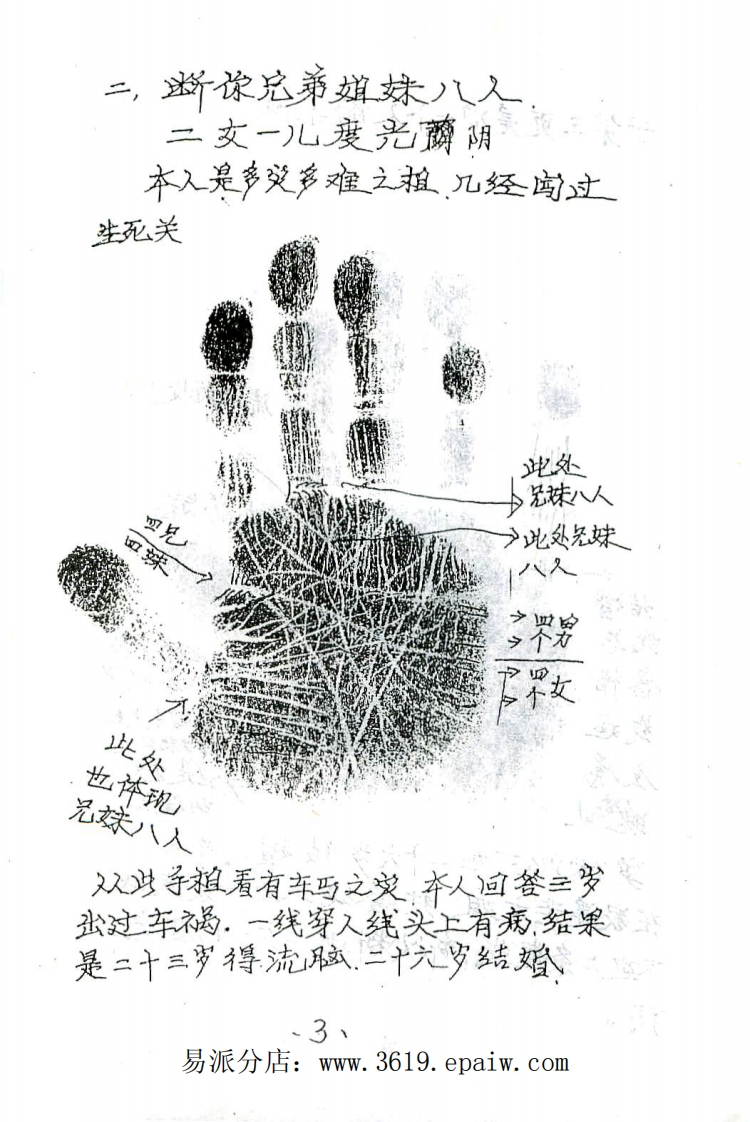 二，断你兄弟姐妹八人．
二女一儿度光阴
本人是多灾多难之相．几经闯过
生死关
此处
兄妹八人
四兄
四妹
此处兄妹
八人
四个男
四个女
此处
也体现
兄妹八人
从此手相看有车马之灾．本人回答三岁
出过车祸．一线穿入线头上有病．结果
是二十三岁得流脑．二十六岁结婚．
、3、
易派分店：www.3619.epaiw.com